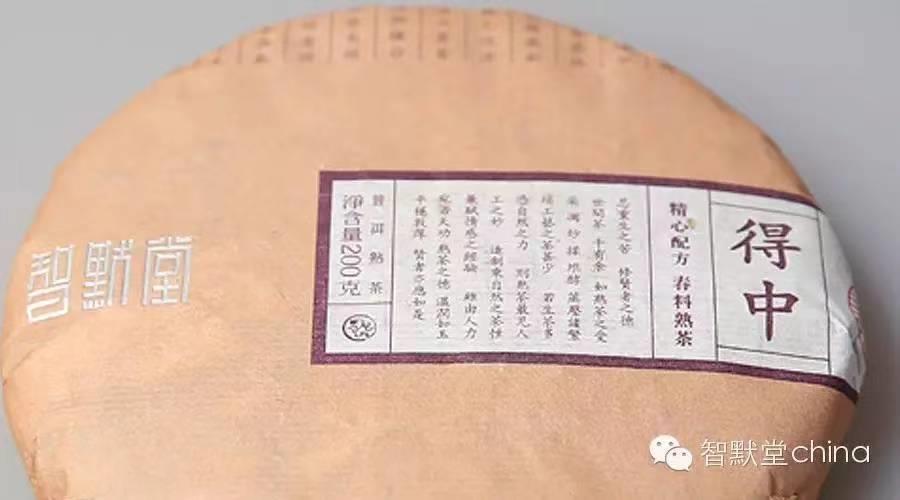 智默堂
得中
精心配方 春料熟茶
忍重生之苦 修賢者之德
世間茶 千百余 如熟茶之受
采 凋 炒 揉 堆酵 蒸壓諸繁
複工藝之茶甚少 若生茶多
憑自然之力 則熟茶最見人
工之妙 造制秉自然之茶性
兼賦情感之經驗 雖由人力
宛若天功 熟茶之德 溫潤如玉
平穩敦厚 賢者亦應如是
普洱熟茶
淨含量200克
智默堂china